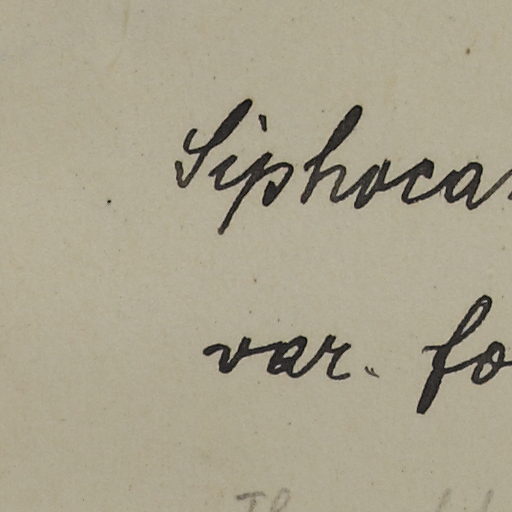 Siphoca
var. fo